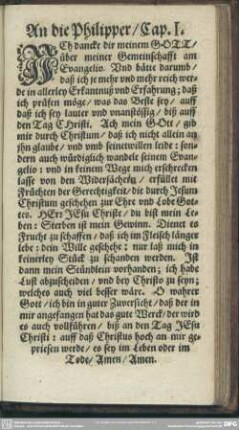 An die Philipper/ Cap. I.
ICh dancke dir meinem GOTT/
über meiner Gemeinschafft am
Evangelio. Vnd bätte darumb/
daß ich je mehr vnd mehr reich wer-
de in allerley Erkantnuß vnd Erfahrung; daß
ich prüfen möge/ was das Beste sey/ auff
daß ich sey lauter vnd vnanstößig/ biß auff
den Tag Christi. Ach mein GOtt/ gib
mir durch Christum/ daß ich nicht allein an
ihn glaube/ vnd vmb seinetwillen leide: son-
dern auch würdiglich wandele seinem Evan-
gelio: vnd in keinem Wege mich erschrecken
lasse von den Widersächern/ erfüllet mit
Früchten der Gerechtigkeit/ die durch Jesum
Christum geschehen zur Ehre vnd Lobe Got-
tes. HErr JEsu Christe/ du bist mein Le-
ben: Sterben ist mein Gewinn. Dienet es
Frucht zu schaffen/ daß ich im Fleisch länger
lebe: dein Wille geschehe: nur laß mich in
keinerley Stück zu schanden werden. Ist
dann mein Stündlein vorhanden; ich habe
Lust abzuscheiden/ vnd bey Christo zu seyn;
welches auch viel besser wäre. O wahrer
Gott/ ich bin in guter Zuversicht/ daß der in
mir angefangen hat das gute Werck/ der wird
es auch vollführen/ biß an den Tag JEsu
Christi: auff daß Christus hoch an mir ge-
priesen werde/ es sey im Leben oder im
Tode/ Amen/ Amen.